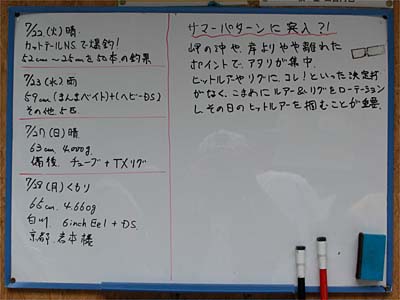 7/22 (火) 晴
カットテールN.S.で爆釣!
52cm～25cmを50本の釣果
7/23 (水) 雨
59cm (まんまベイト)+(ヘビーDS)
その他 5匹
7/27 (日) 晴
63cm 4,000g
備後 チューブ+TXリグ
7/28 (月) くもり
66cm. 4,660g
白川 6inch Eel + DS
京都 岩本様
サマーパターンに突入?!
岬の沖や、岸よりやや離れた
ポイントで、アタリが集中。
ヒットルアーやリグに、コレ!といった決定打
がなく、こまめにルアー&リグをローテーション
し、その日のヒットルアーを掴むことが重要。